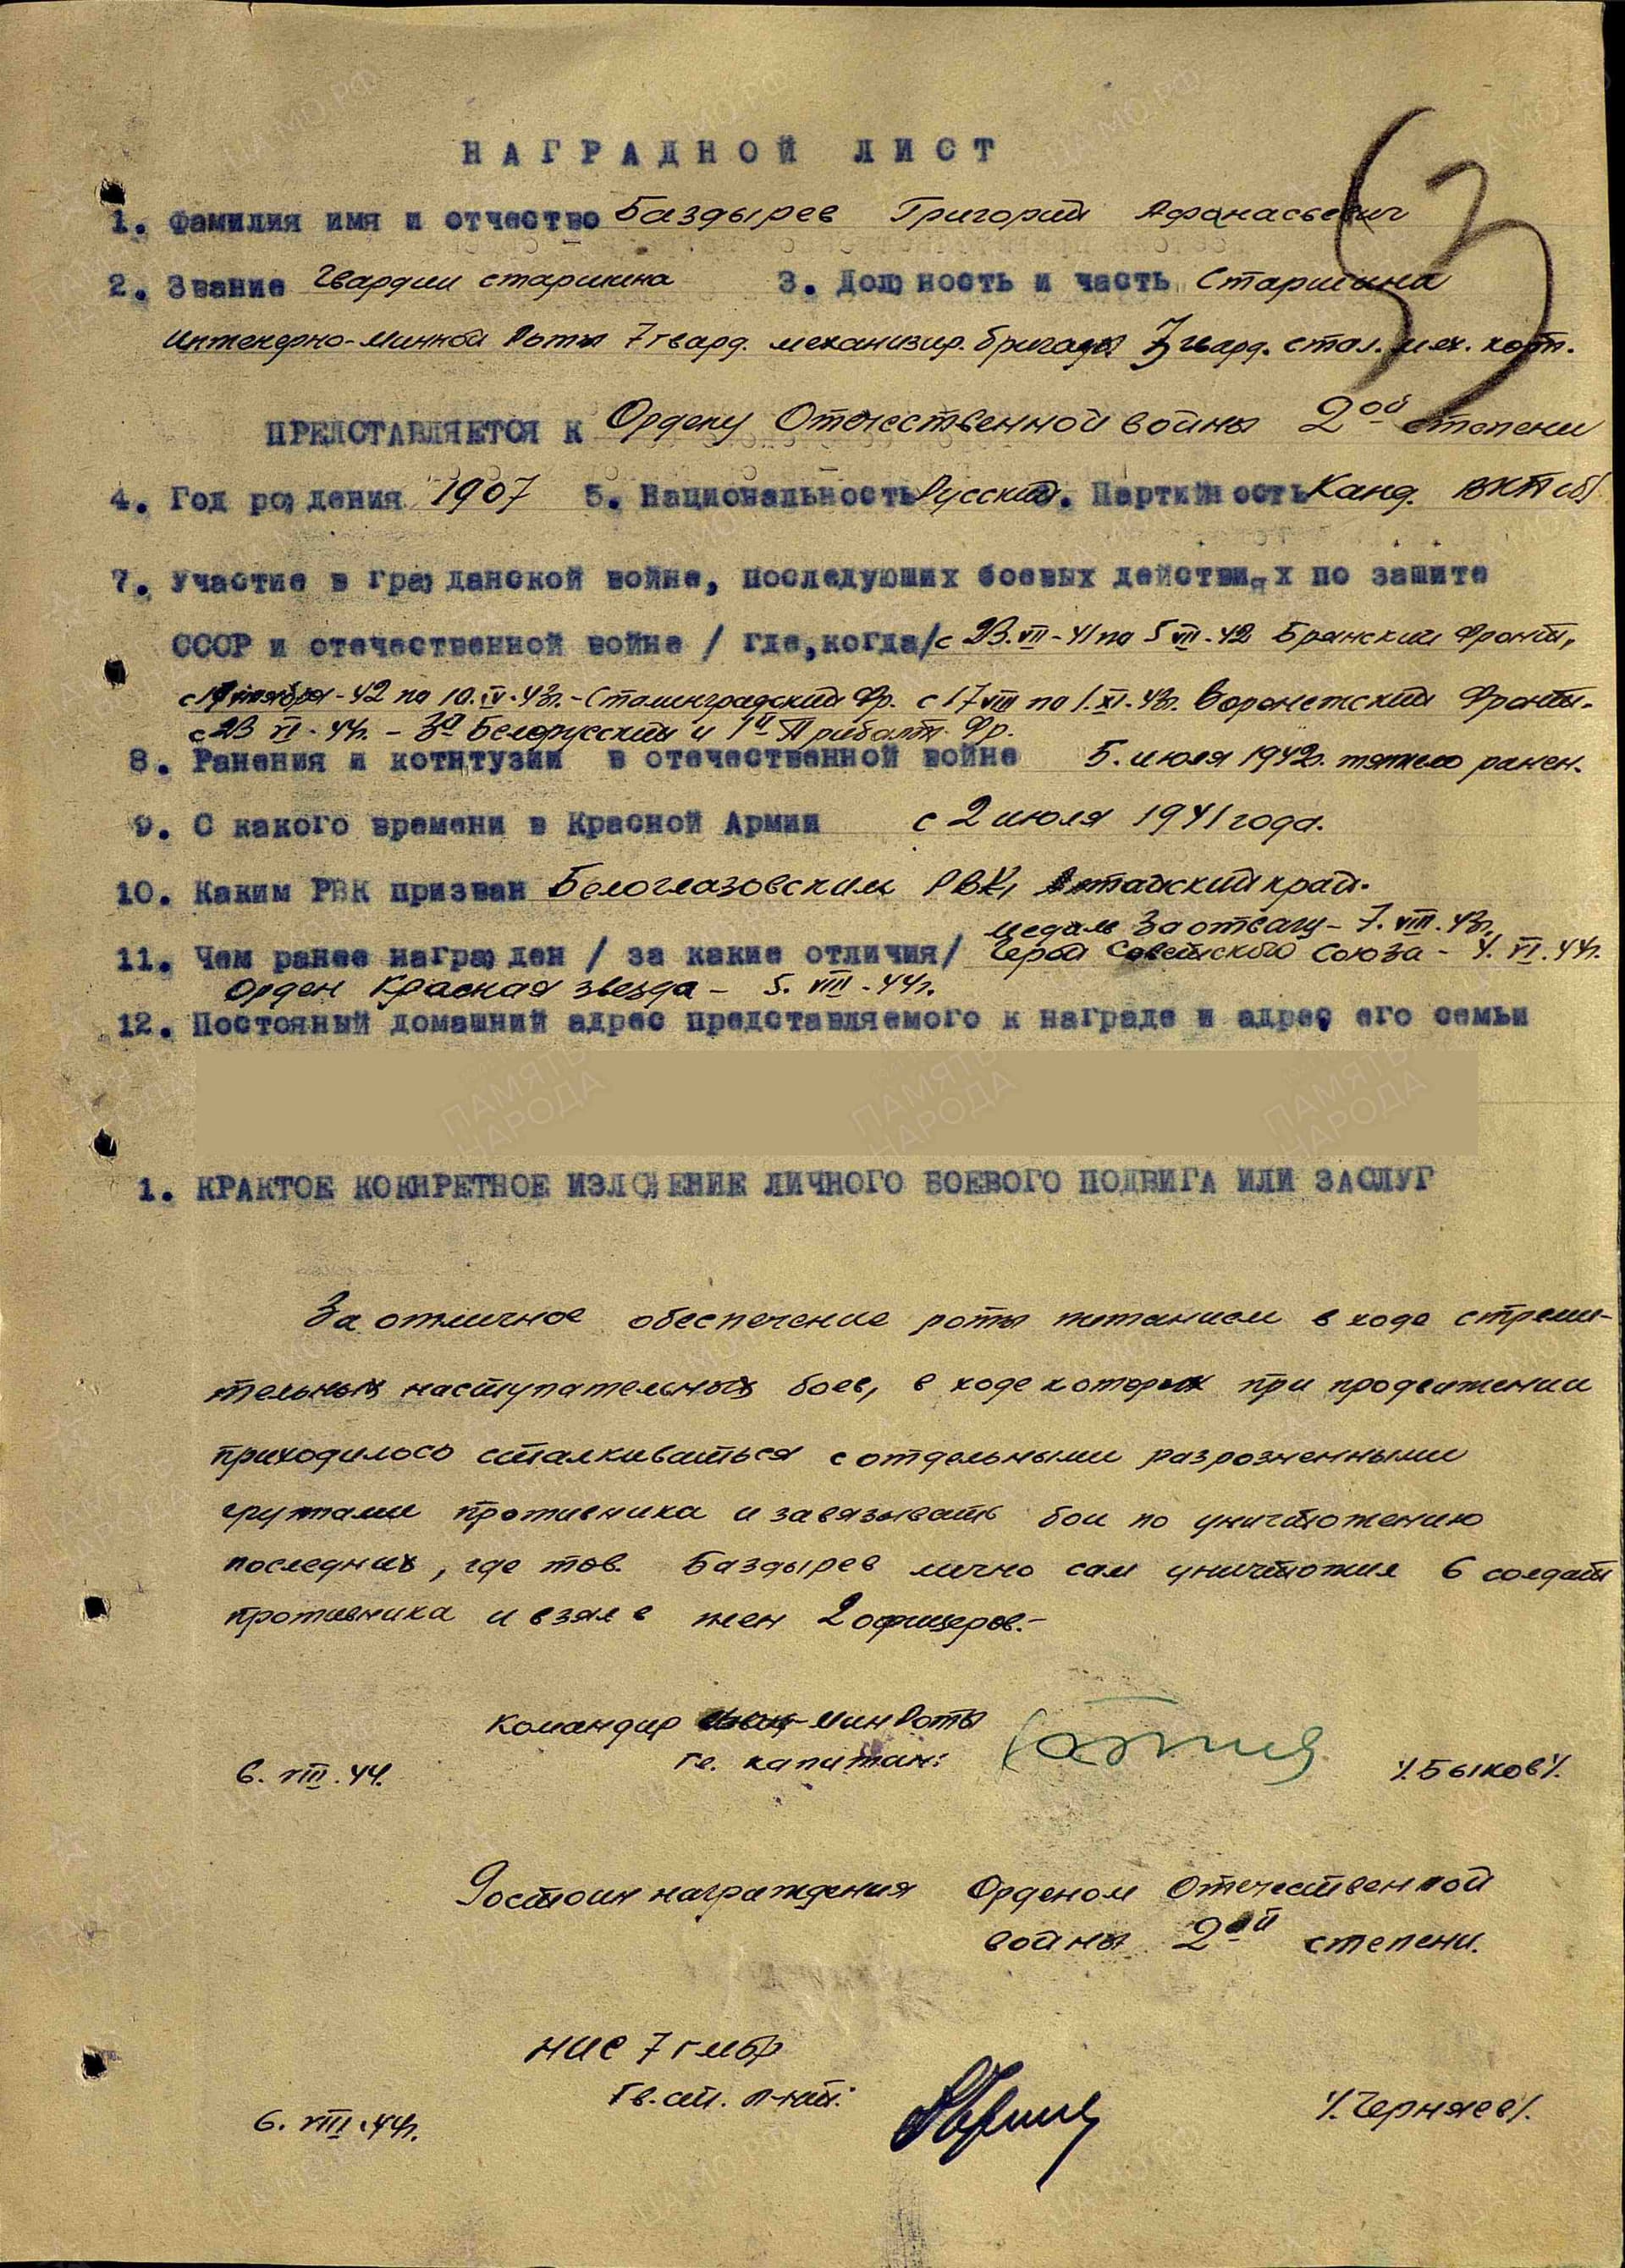 НАГРАДНОЙ ЛИСТ
1. Фамилия имя и отчество Баздырев Григорий Афанасьевич
2. Звание Гвардии старшина 3. Должность и часть Старшина
Инженерно-Минной Роты 7 гвард. механизир. бригады 3 гвард. стал. мех. корп.
ПРЕДСТАВЛЯЕТСЯ К Ордену Отечественной войны 2ой степени
4. Год рождения 1907 5. Национальность Русский 6. Партийность Канд. ВКП(б)
7. Участие в гражданской войне, последующих боевых действиях по защите
СССР и отечественной войне / где, когда/ с 23.VII-41 по 5 VII-42 Брянский Фронт,
с 17 ноября-42 по 10.IV.43г.-Сталинградский Фр. с 17 VIII по 1.XI.43г. Воронежский Фронт.
с 23 VI. 44г. - 3й Белорусский и 1й Прибалт. Фр.
8. Ранения и котнтузии в отечественной войне 5. июля 1942г. тяжело ранен.
9. С какого времени в Красной Армии с 2 июля 1941 года.
10. Каким РВК призван Белоглазовским РВК, Алтайский край.
медаль За отвагу - 7. VIII. 43г.
11. Чем ранее награжден / за какие отличия/ Герой Советского Союза - 4. VI. 44г.
Орден Красная звезда - 5. VIII. 44г.
12. Постояный домашний адрес представляемого к награде и адрес его семьи
1. КРАКТОЕ КОКНРЕТНОЕ ИЗЛОЖЕНИЕ ЛИЧНОГО БОЕВОГО ПОДВИГА ИЛИ ЗАСЛУГ
За отличное обеспечение роты питанием в ходе стреми-
тельных наступательных боев, в ходе которых при продвижении
приходилось сталкиваться с отдельными разрозненными
группами противника и завязывать бои по уничтожению
последних, где тов. Баздырев лично сам уничтожил 6 солдат
противника и взял в плен 2 офицеров.-
Командир МинРоты
6. VIII. 44. гв. капитан: /.Быков/.
Достоин награждения Орденом Отечественной
войны 2ой степени.
НИС 7 гмбр
Гв. ст. л-нт:
6. VIII. 44г. /.Черняев/.
ПАМЯТЬ НАРОДА
ЦА МО.РФ